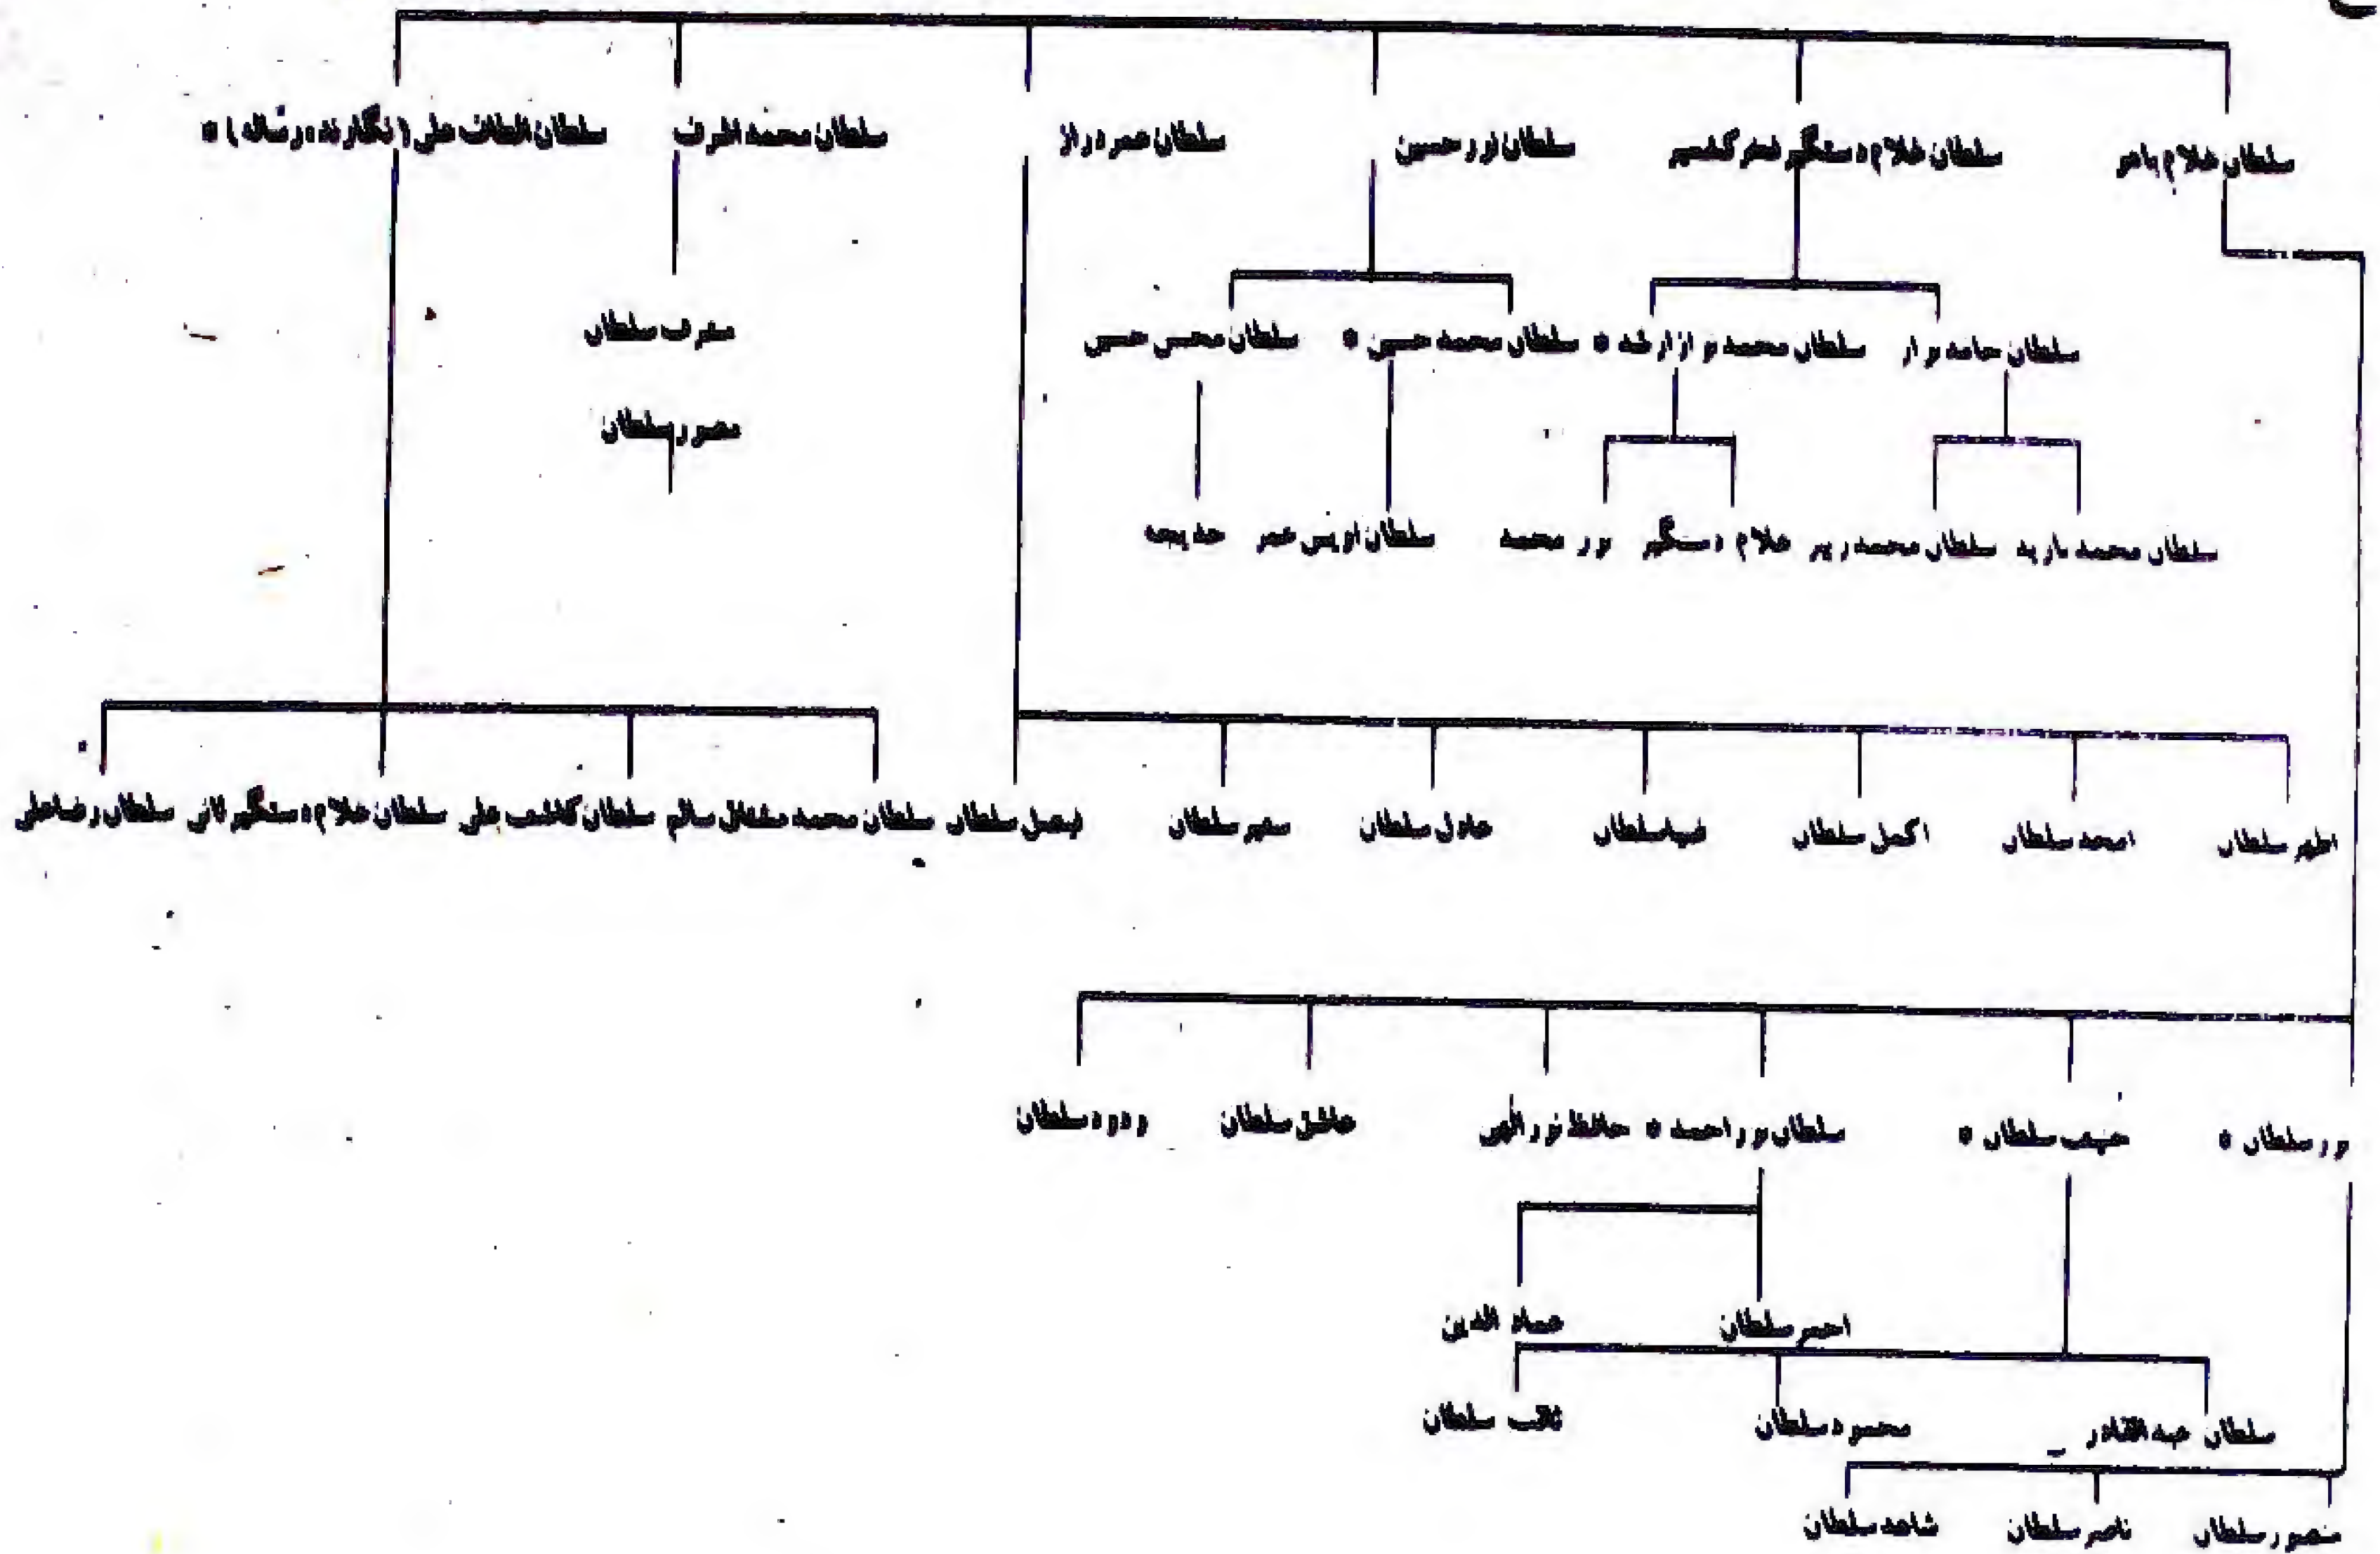 سلطان غلام باهو سلطان غلام دستگیر فخر کشمیر سلطان نور حسین سلطان عمر دراز سلطان محمد اشرف سلطان الطاف علی (نگارنده رساله) *
مشرف سلطان
سلطان حامد نواز سلطان محمد نواز ارشد * سلطان محمد حسین * سلطان محسن حسین
منصور سلطان
سلطان محمد بازید سلطان محمد زبیر غلام دستگیر نور محمد سلطان اویس عمر خدیجه
اطهر سلطان امجد سلطان اکمل سلطان ضیا سلطان عادل سلطان فیصل سلطان سلطان محمد سلطان کاشف علی سلطان غلام دستگیر ثانی سلطان رضا علی
نور سلطان * حبیب سلطان * سلطان نور احمد * حافظ نور الهی عاشق سلطان ودود سلطان
احمر سلطان عماد الدین
سلطان عبدالقادر محمود سلطان ثاقب سلطان
منصور سلطان ناصر سلطان شاهد سلطان